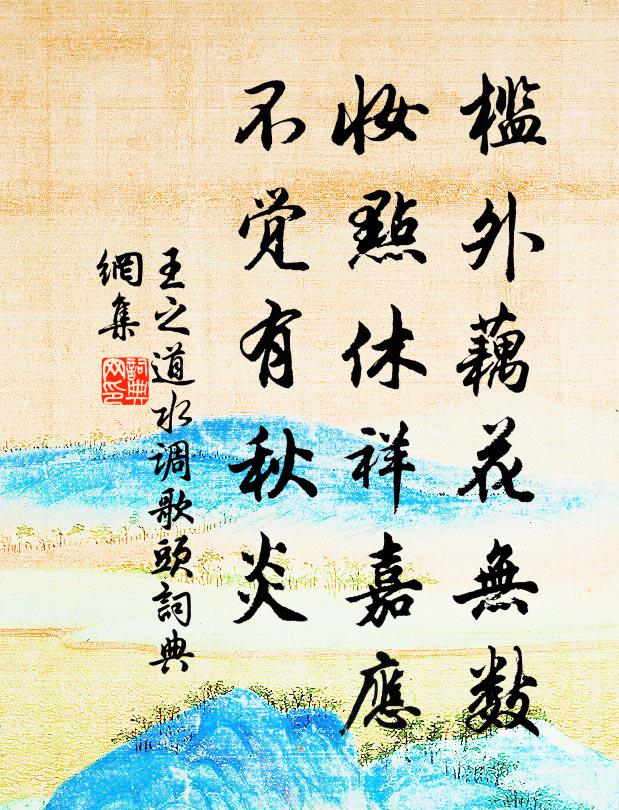 槛外藕花無数
妆點休祥嘉應
不觉有秋炎
王之道水调歌頭詞典
網集
詞典
网印